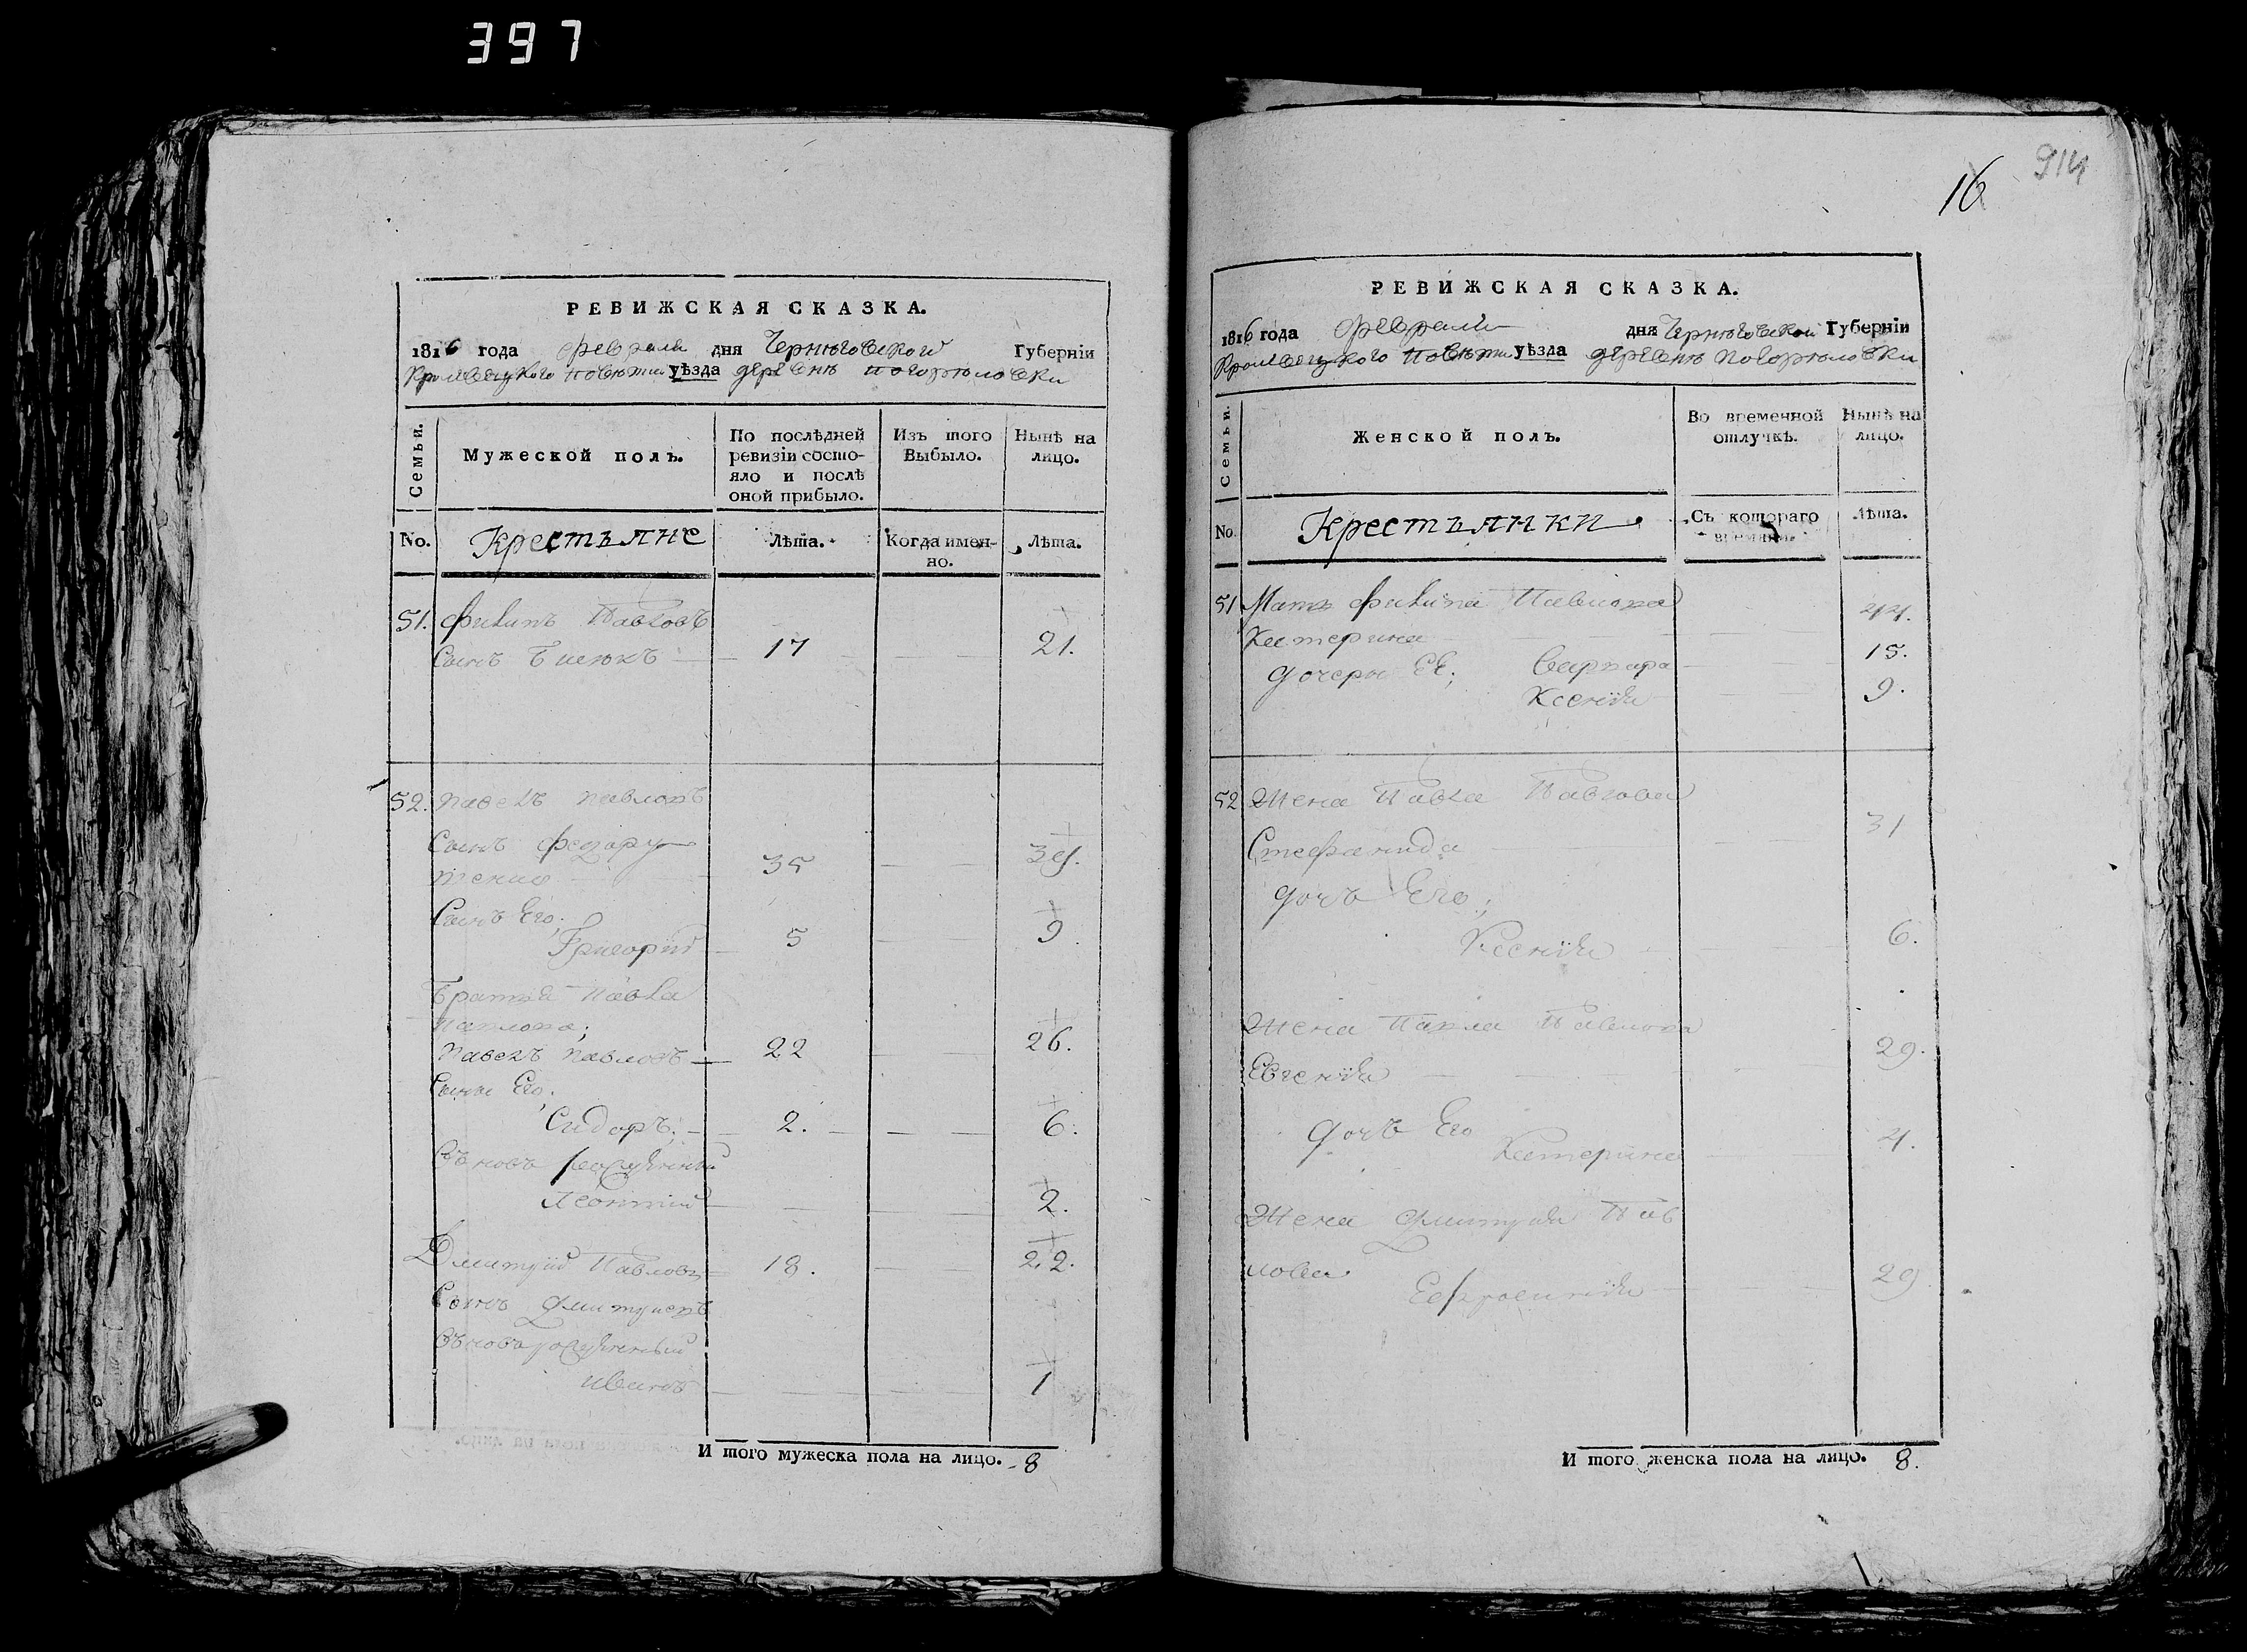 397
РЕВИЖСКАЯ СКАЗКА.
1816 года февраля дня Черниговской Губернiи
Кролевецкого повѣта уѣзда деревнѣ Погорѣловки
Семьи.
Мужеской полъ.
По послѣдней ревизiи состо-
яло и послѣ
оной прибыло.
Изъ того
Выбыло.
Нынѣ на
лицо.
No. Крестьяне Лѣта. Когда имен-
но. Лѣта.
51. Филипъ Павловъ
Сынъ 17 21.
52. Павелъ Павловъ
Сынъ 35 39.
Сынъ Его;
Григорий 5 9
Братья Павла
Павлова;
Павелъ Павловъ 22 26.
Сыны Его;
Сидоръ; 2. 6.
Вновъ рожденный
Леонтий 2.
Дмитрий Павловъ 18. 22.
Сынъ Дмитриевъ
Вновъ рожденный
иванъ 1
И того мужеска пола на лицо. 8
16 914
РЕВИЖСКАЯ СКАЗКА.
1816 года февраля дня Черниговской Губернiи
Кролевецкого повѣта уѣзда деревнѣ Погорѣловки
Семьи.
Женской полъ.
Во временной
отлучкѣ.
Нынѣ на
лицо.
No. Крестьянки Съ котораго
времяни. Лѣта.
51 Мать Филипа Павлова 44.
Катерина
дочери ЕЕ; Варвара 15.
Ксенiя 9.
52 Жена Павла Павлова 31
Стефанида
дочъ Его;
Ксенiя 6.
Жена Павла Павлова 29.
Евгенiя
дочъ Его
Катерина 4.
Жена Дмитрия Пав
лова 29
Ефросинiя
И того женска пола на лицо. 8.